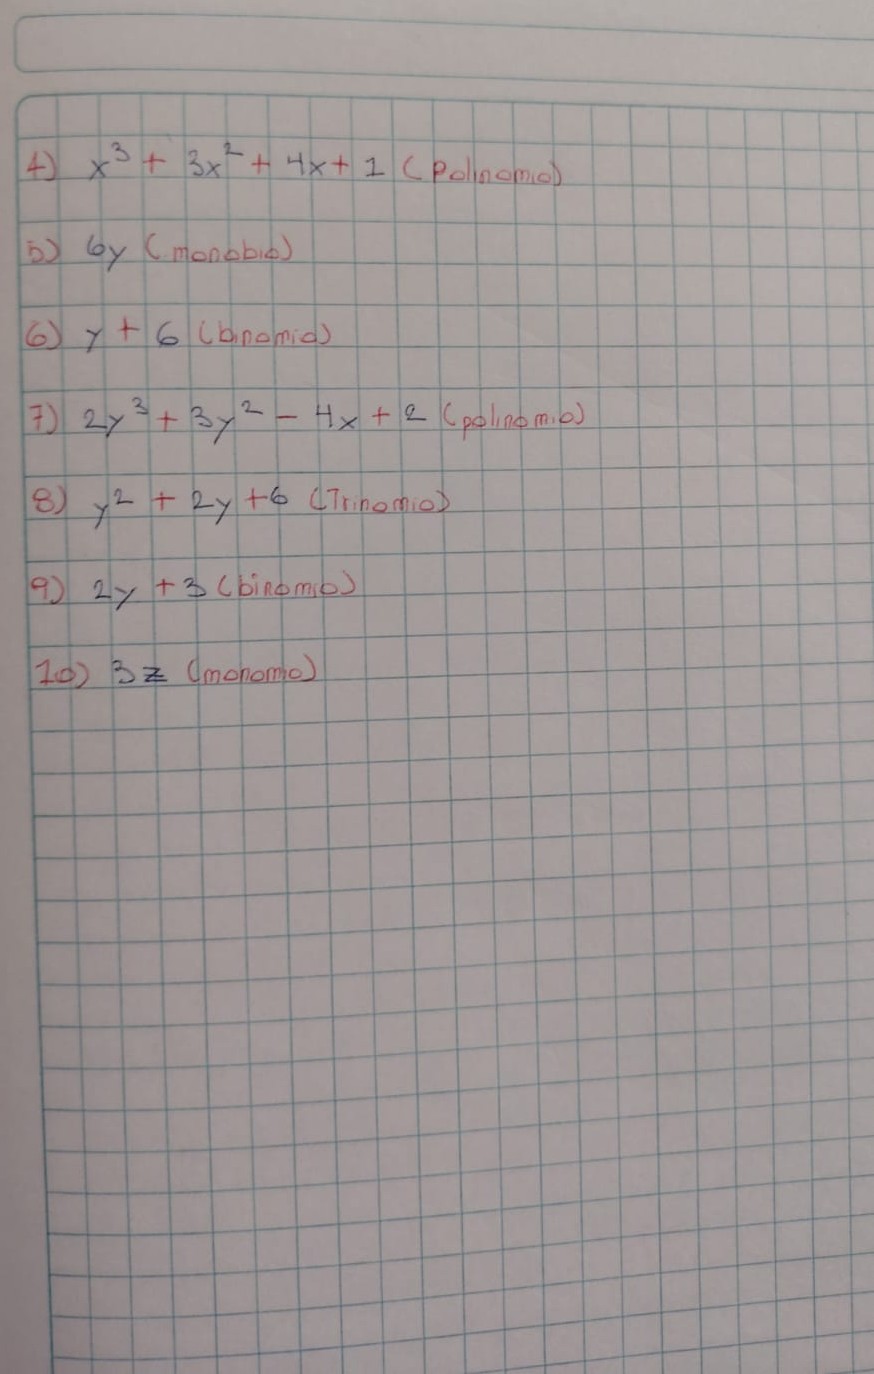 4) x³ + 3x² + 4x + 1 (polinomio)
5) 6y (monobio)
6) y + 6 (binomio)
7) 2y³ + 3y² - 4x + 2 (polinomio)
8) y² + 2y + 6 (Trinomio)
9) 2y + 3 (binomio)
10) 3z (monomio)